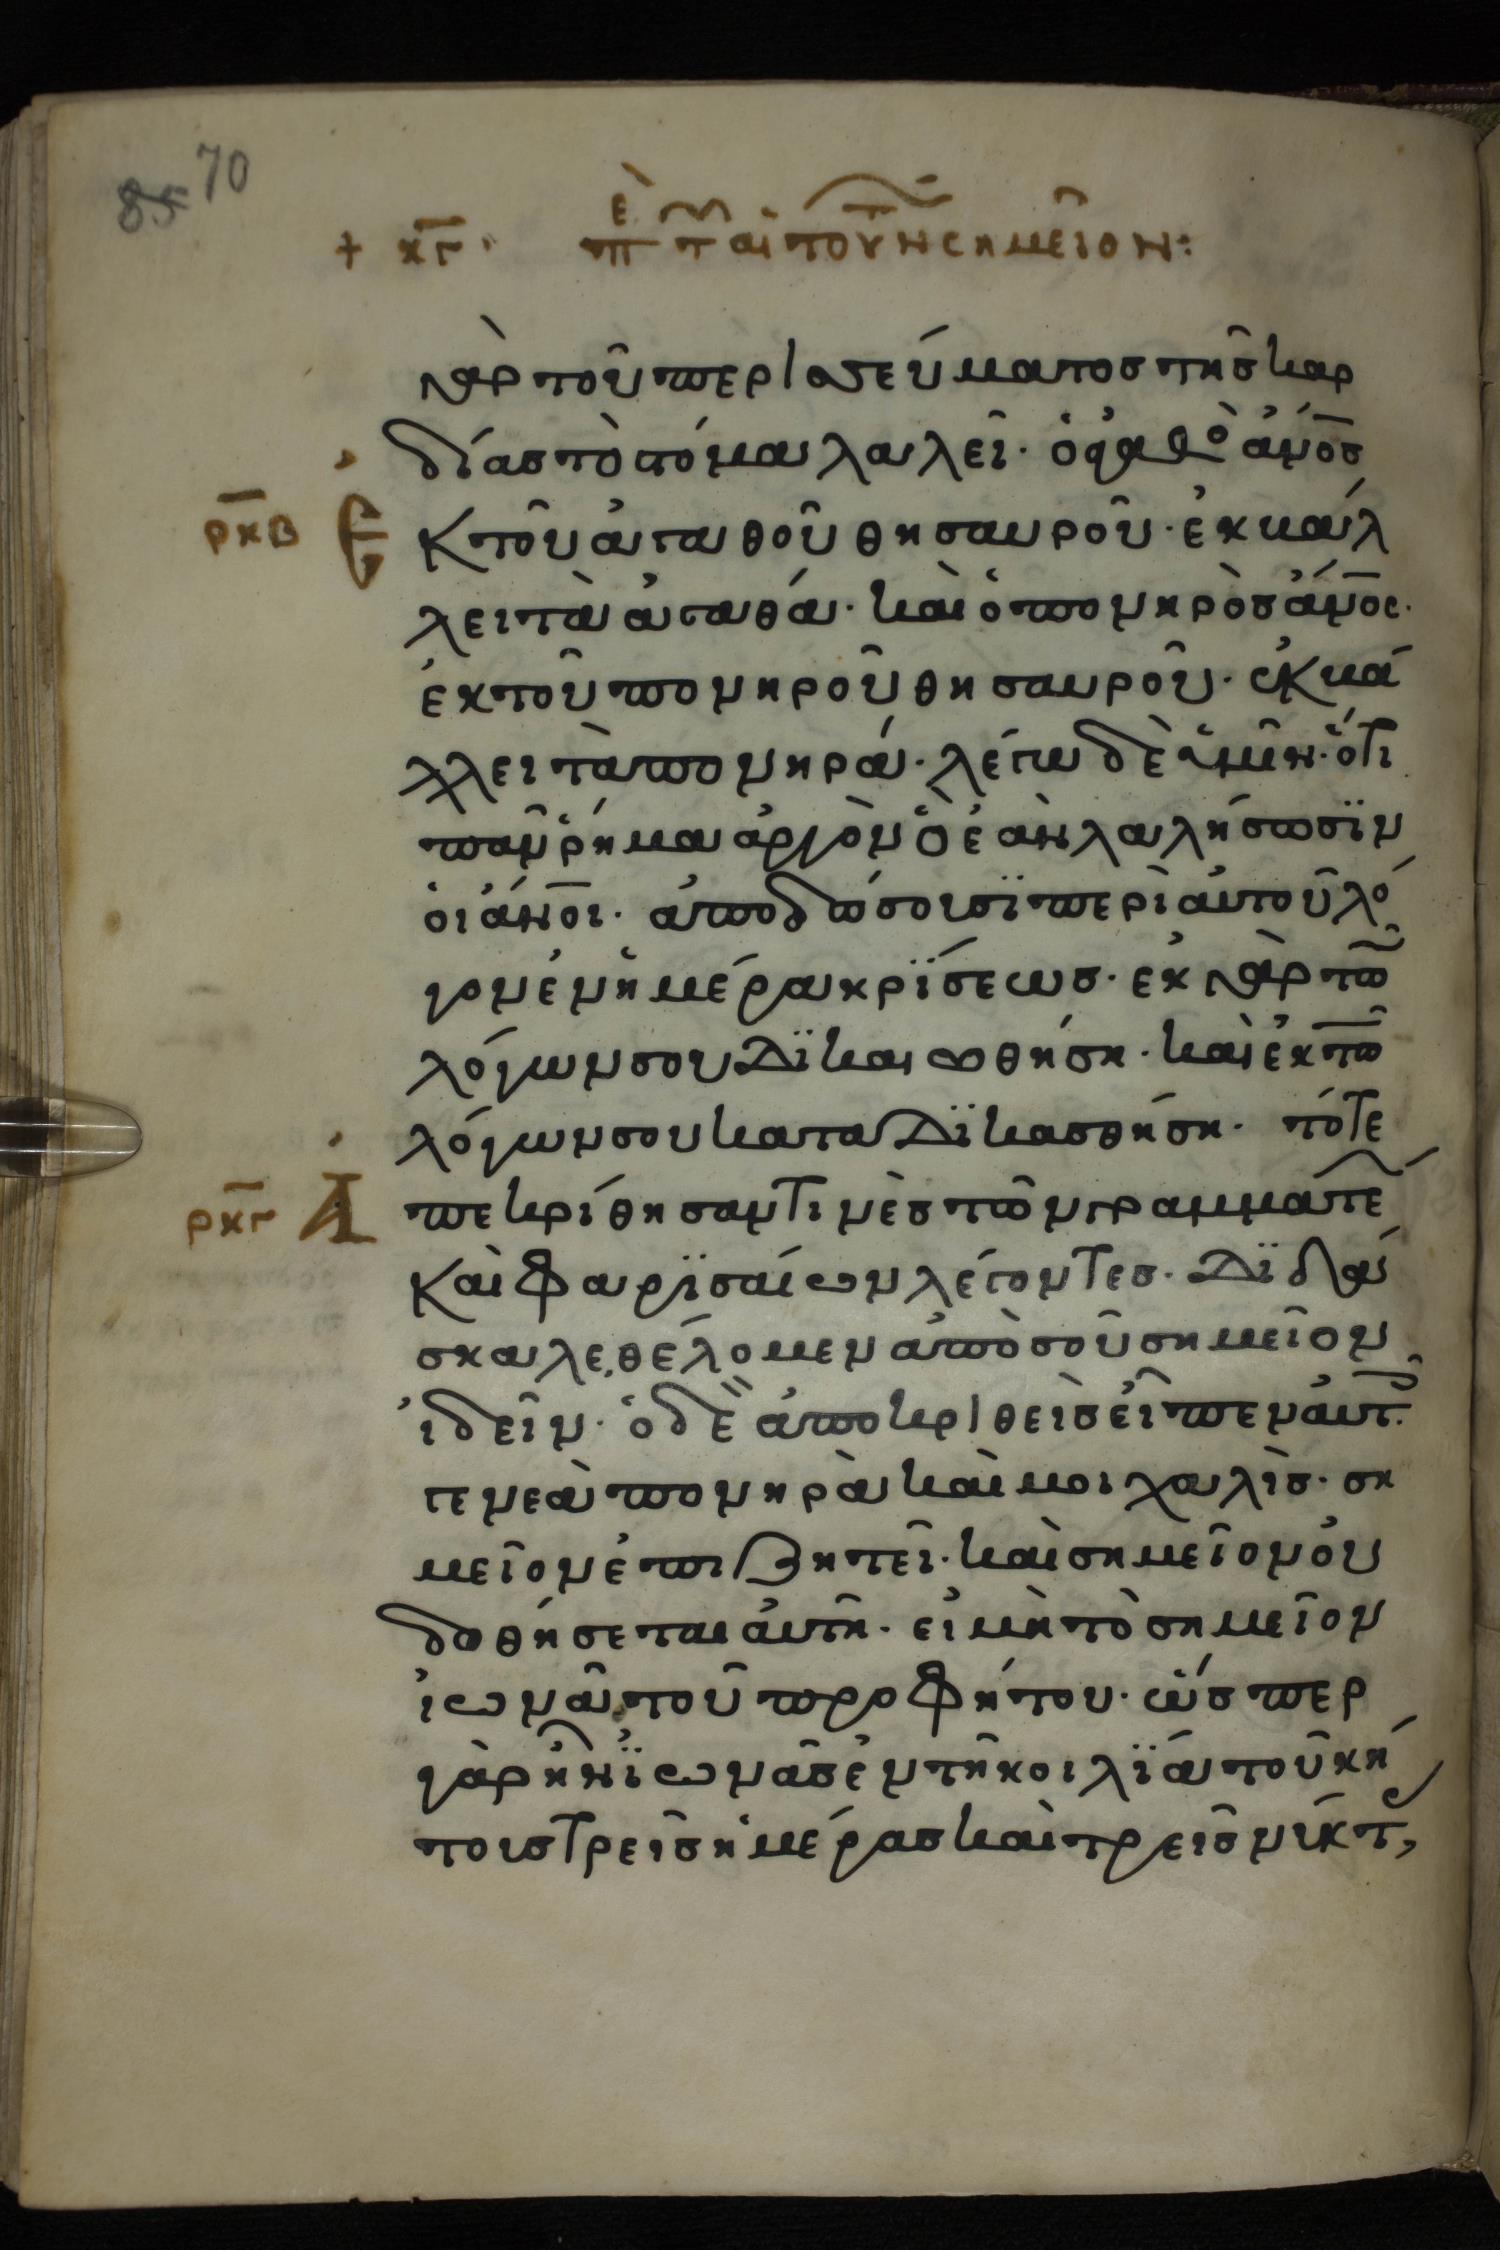 85 70
+ κγ· περὶ τῶν αἰτούντων σημεῖον:
γὰρ τοῦ περισσεύματος τῆς καρ
δίας τὸ στόμα λαλεῖ· ὁ ἀγαθὸς ἄνος
ρκβ Ἐκ τοῦ ἀγαθοῦ θησαυροῦ· ἐκβάλ
λει τὰ ἀγαθά· καὶ ὁ πονηρὸς ἄνος·
ἐκ τοῦ πονηροῦ θησαυροῦ· ἐκβά
λλει τὰ πονηρά· λέγω δὲ ὑμῖν· ὅτι
πᾶν ῥήμα ἀργὸν ὃ ἐὰν λαλήσωσϊν
οἱ ἄνοι· ἀποδώσουσϊ περὶ αὐτοῦ λό
γον ἐν ἡμέρα κρϊσεως· ἐκ γὰρ τῶ
λόγων σου δϊκαιωθήση· καὶ ἐκ τῶ
λόγων σου καταδϊκασθήση· τότε
ρκγ Ἀπεκρίθησαν τινὲς τῶν γραμματέ
καὶ φαρϊσαίων λέγοντες· δϊδά
σκαλε, θέλομεν ἀπὸ σοῦ σημεῖον
ἰδεῖν· ὁ δὲ ἀποκριθεὶς εἶπεν αὐτ.
γενεὰ πονηρὰ καὶ μοιχαλὶς· ση
μεῖον ἐπιζητεῖ· καὶ σημεῖον οὐ
δοθήσεται αὐτῆ· εἰ μὴ τὸ σημεῖον
ἰωνᾶ τοῦ προφήτου· ὥσπερ
γὰρ ἦν ϊωνᾶς ἐν τῆ κοιλϊά τοῦ κή
τους τρεῖς ἡμέρας καὶ τρεῖς νύκτ,